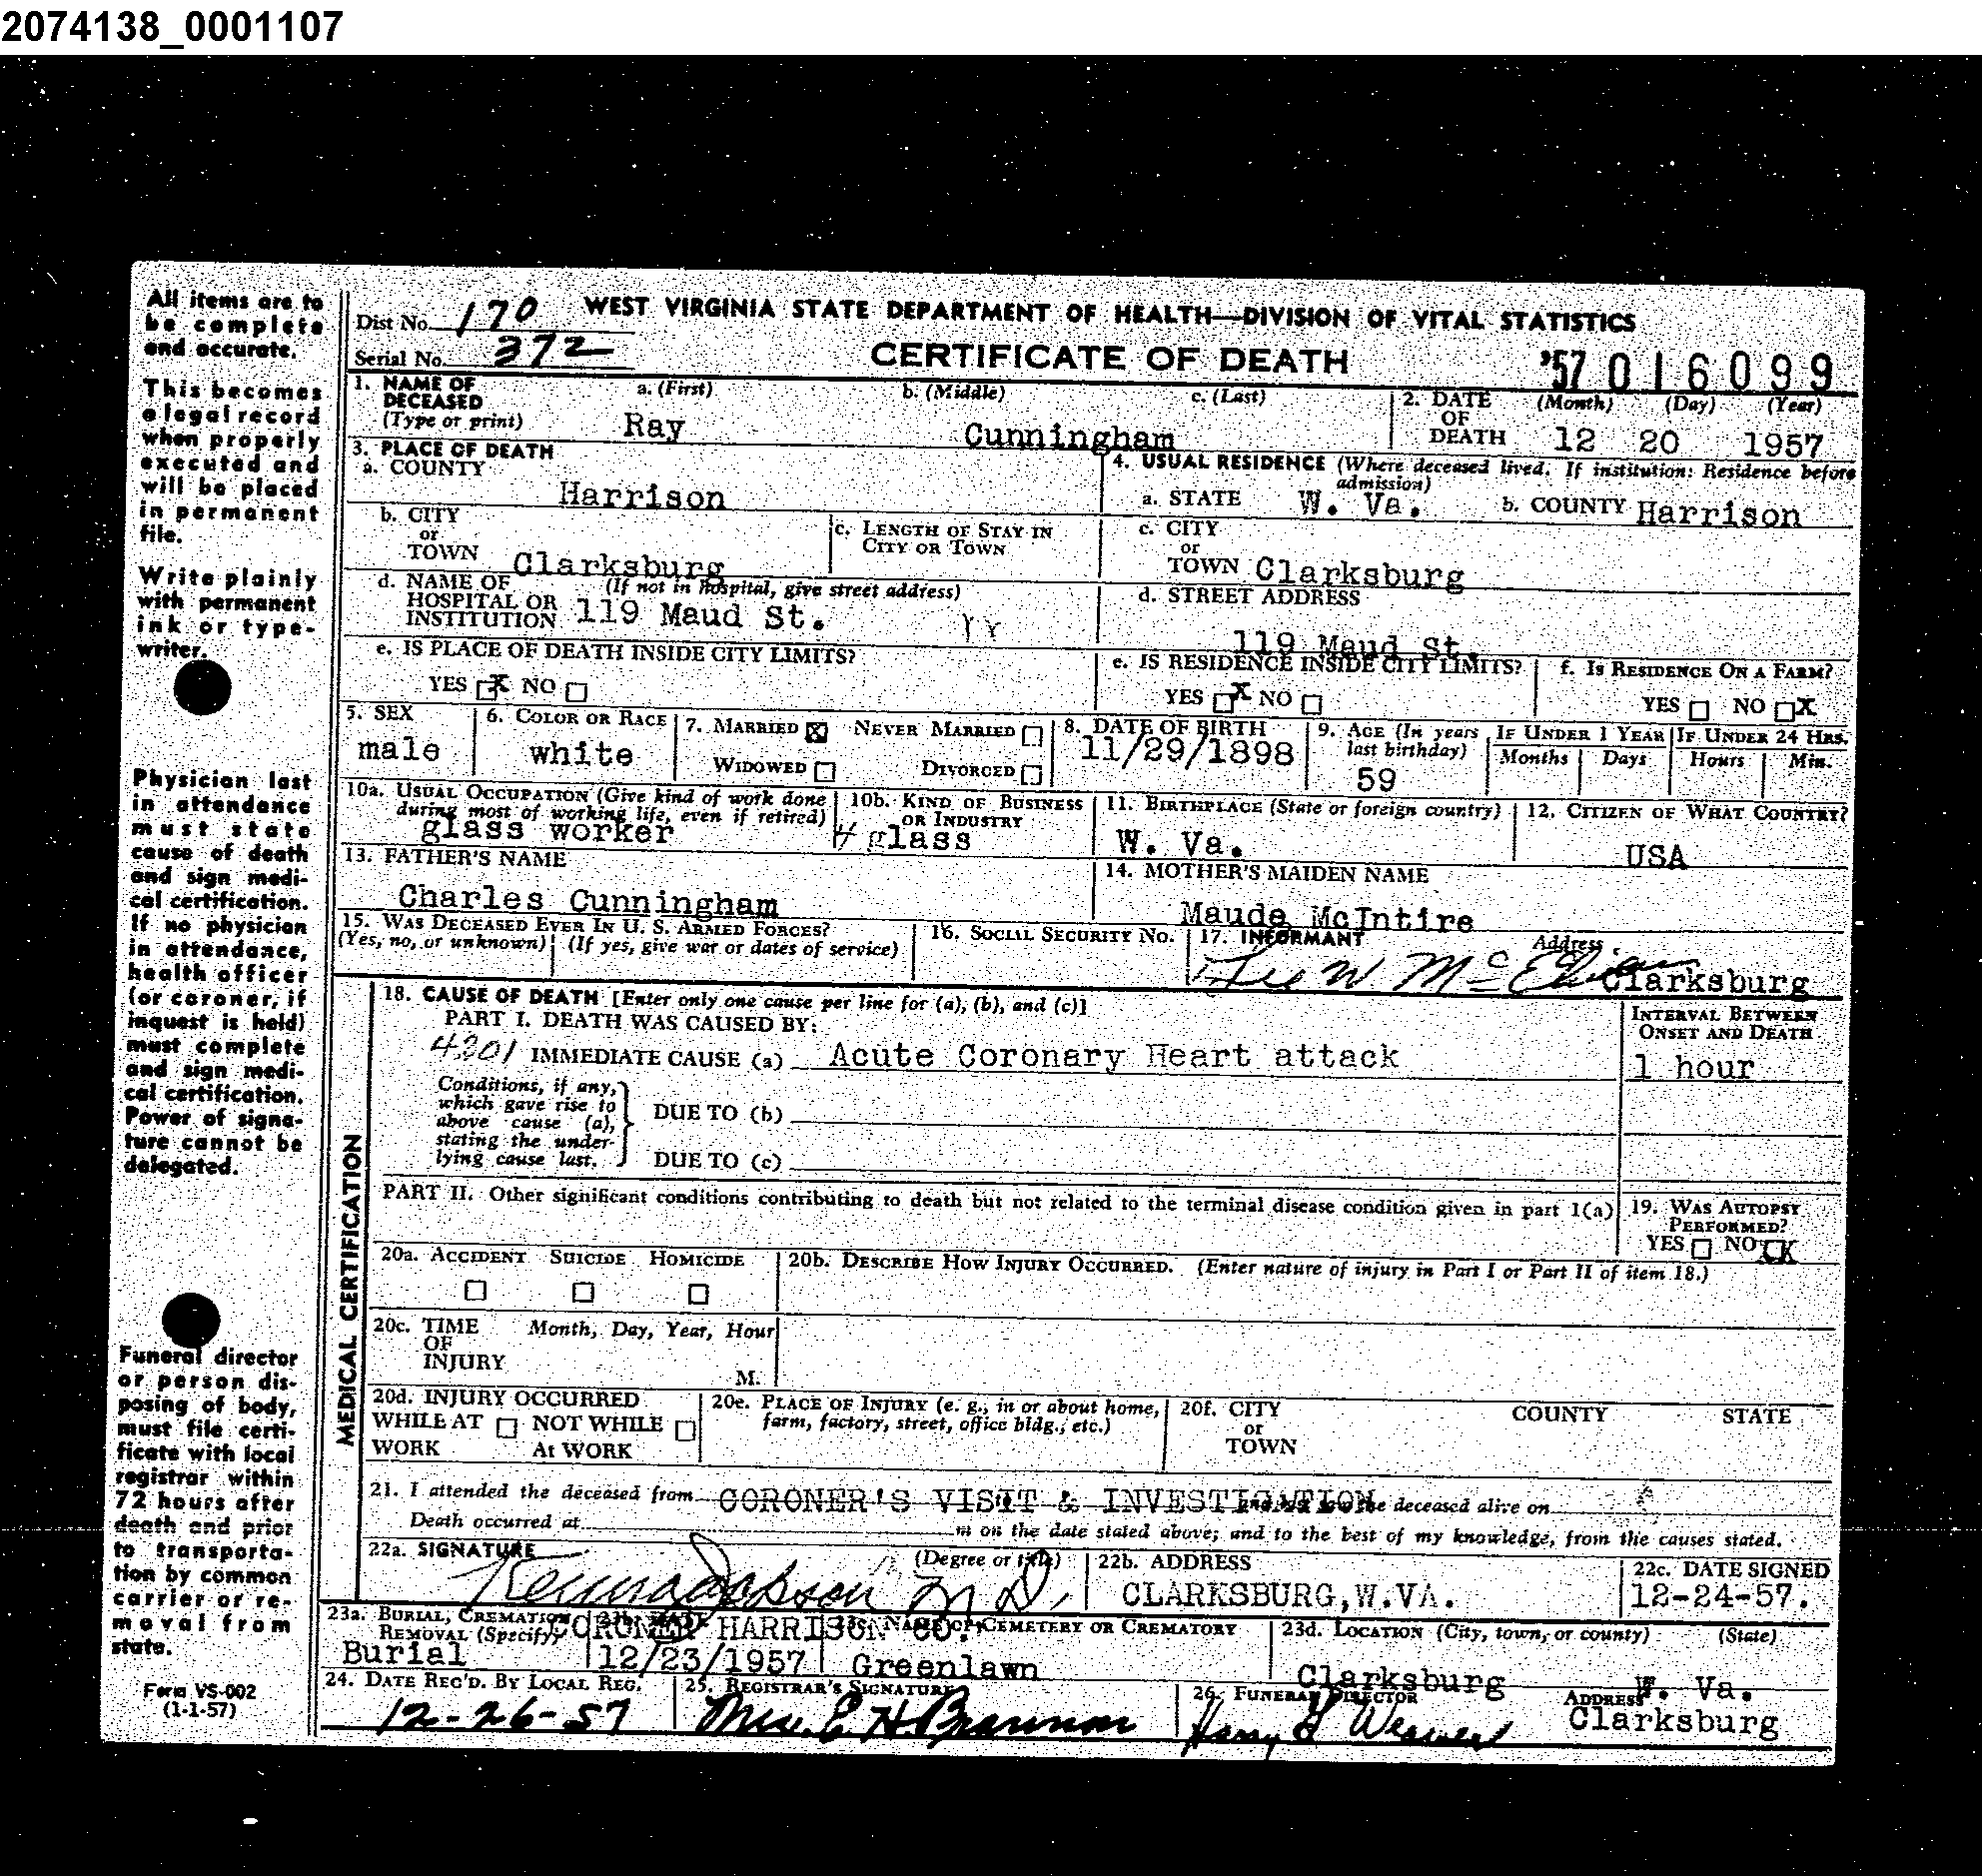 2074138_0001107
All items are to
be complete
and accurate.
This becomes
a legal record
when properly
executed and
will be placed
in permanent
file.
Write plainly
with permanent
ink or type-
writer.
Physician last
in attendance
must state
cause of death
and sign medi-
cal certification.
If no physician
in attendance,
health officer
(or coroner, if
inquest is held)
must complete
and sign medi-
cal certification.
Power of signa-
ture cannot be
delegated.
Funeral director
or person dis-
posing of body,
must file certi-
ficate with local
registrar within
72 hours after
death and prior
to transporta-
tion by common
carrier or re-
moval from
state.
Form VS-002
(1-1-57)
Dist No. 170 WEST VIRGINIA STATE DEPARTMENT OF HEALTH—DIVISION OF VITAL STATISTICS
Serial No. 372 CERTIFICATE OF DEATH '57 016099
1. NAME OF DECEASED (Type or print) a. (First) b. (Middle) c. (Last)
Ray Cunningham
2. DATE OF DEATH (Month) (Day) (Year)
12 20 1957
3. PLACE OF DEATH
a. COUNTY
Harrison
4. USUAL RESIDENCE (Where deceased lived. If institution: Residence before admission)
a. STATE W. Va. b. COUNTY Harrison
b. CITY or TOWN Clarksburg
c. LENGTH OF STAY IN CITY OR TOWN
c. CITY or TOWN Clarksburg
d. NAME OF HOSPITAL OR INSTITUTION (If not in hospital, give street address)
119 Maud St. Y Y
d. STREET ADDRESS
119 Maud St.
e. IS PLACE OF DEATH INSIDE CITY LIMITS?
YES X NO
e. IS RESIDENCE INSIDE CITY LIMITS?
YES X NO
f. IS RESIDENCE ON A FARM?
YES NO X
5. SEX
male
6. COLOR OR RACE
white
7. MARRIED X NEVER MARRIED
WIDOWED DIVORCED
8. DATE OF BIRTH
11/29/1898
9. AGE (In years last birthday)
59
IF UNDER 1 YEAR
Months Days
IF UNDER 24 HRS.
Hours Min.
10a. USUAL OCCUPATION (Give kind of work done during most of working life, even if retired)
glass worker
10b. KIND OF BUSINESS OR INDUSTRY
glass
11. BIRTHPLACE (State or foreign country)
W. Va.
12. CITIZEN OF WHAT COUNTRY?
USA
13. FATHER'S NAME
Charles Cunningham
14. MOTHER'S MAIDEN NAME
Maude McIntire
15. WAS DECEASED EVER IN U. S. ARMED FORCES?
(Yes, no, or unknown) (If yes, give war or dates of service)
16. SOCIAL SECURITY NO.
17. INFORMANT Address
W Clarksburg
MEDICAL CERTIFICATION
18. CAUSE OF DEATH [Enter only one cause per line for (a), (b), and (c)]
PART I. DEATH WAS CAUSED BY:
INTERVAL BETWEEN ONSET AND DEATH
4201 IMMEDIATE CAUSE (a) Acute Coronary Heart attack
1 hour
Conditions, if any,
which gave rise to
above cause (a),
stating the under-
lying cause last.
DUE TO (b)
DUE TO (c)
PART II. Other significant conditions contributing to death but not related to the terminal disease condition given in part 1(a)
19. WAS AUTOPSY PERFORMED?
YES NO X
20a. ACCIDENT SUICIDE HOMICIDE
20b. DESCRIBE HOW INJURY OCCURRED. (Enter nature of injury in Part I or Part II of item 18.)
20c. TIME OF INJURY Month, Day, Year, Hour
M.
20d. INJURY OCCURRED
WHILE AT WORK NOT WHILE At WORK
20e. PLACE OF INJURY (e. g., in or about home, farm, factory, street, office bldg., etc.)
20f. CITY or TOWN COUNTY STATE
21. I attended the deceased from CORONER'S VISIT & INVESTIGATION the deceased alive on
Death occurred at m on the date stated above; and to the best of my knowledge, from the causes stated.
22a. SIGNATURE (Degree or title)
Jackson M D,
CORONER HARRISON CO.
22b. ADDRESS
CLARKSBURG, W.VA.
22c. DATE SIGNED
12-24-57.
23a. BURIAL, CREMATION REMOVAL (Specify)
Burial
23b. DATE
12/23/1957
23c. NAME OF CEMETERY OR CREMATORY
Greenlawn
23d. LOCATION (City, town, or county) (State)
Clarksburg W. Va.
24. DATE REC'D. BY LOCAL REG.
12-26-57
25. REGISTRAR'S SIGNATURE
Mrs. E H Brannon
26. FUNERAL DIRECTOR ADDRESS
Harry Weaver Clarksburg